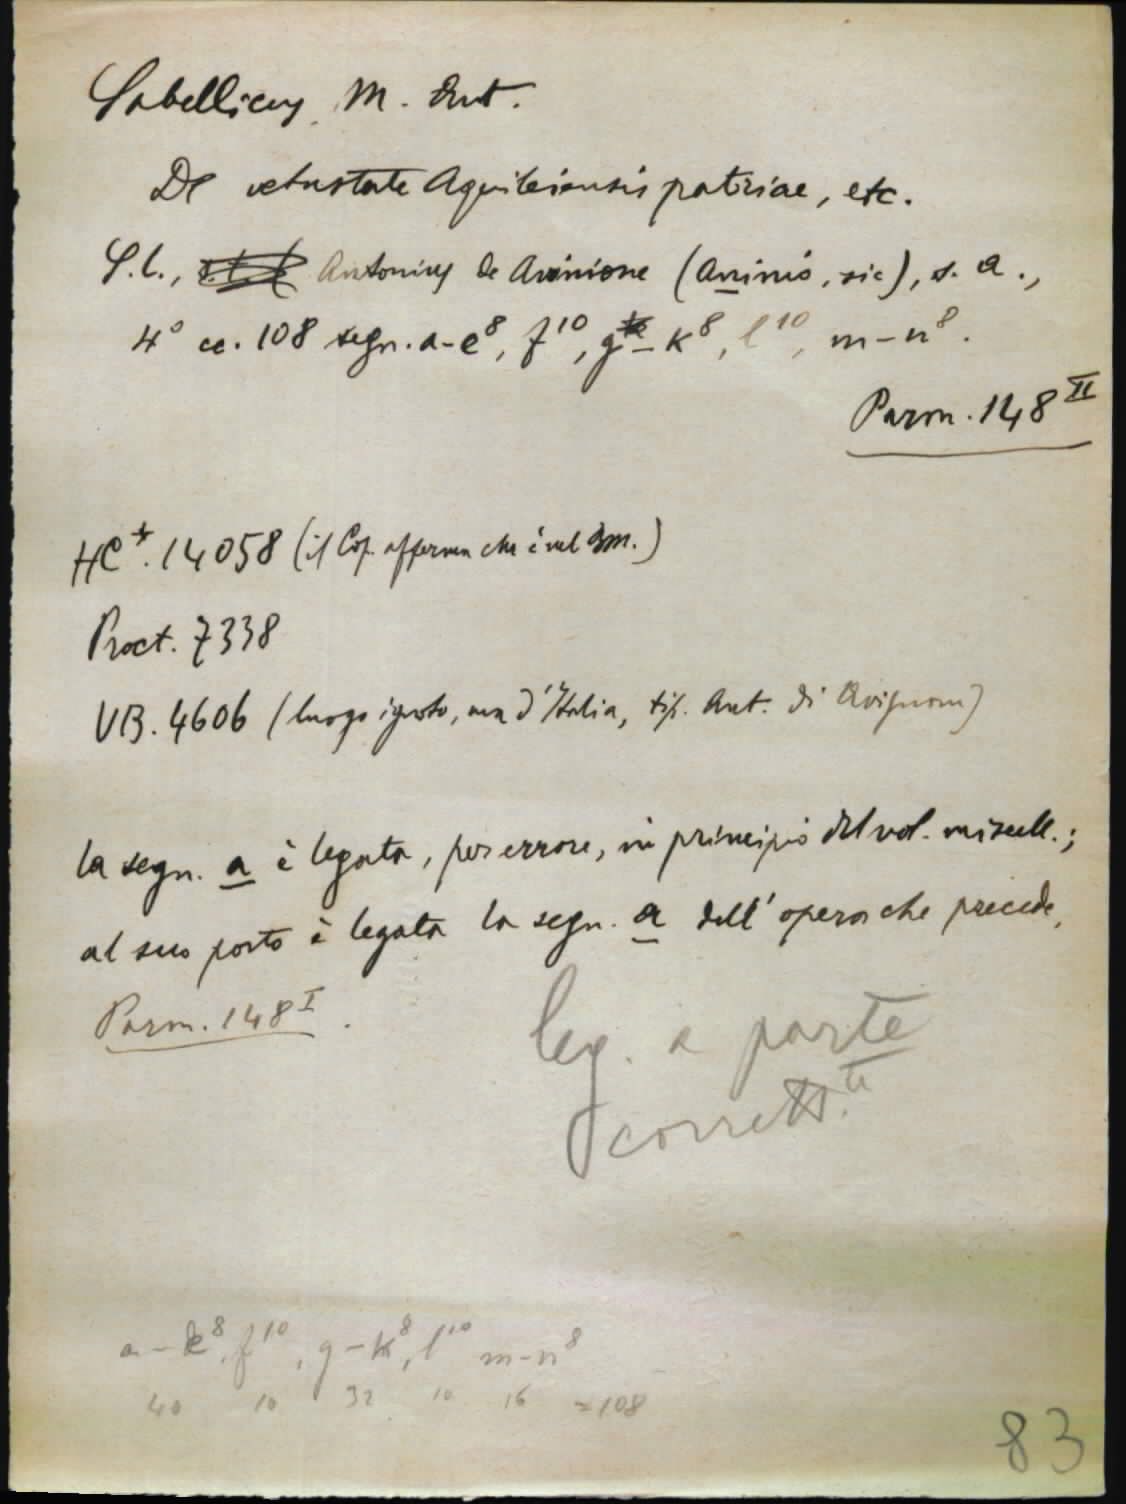 Sabellicus, M. Ant.
De vetustate Aquileiensis patriae, etc.
S.l., Antonius de Avinione (Aninio, sic), s. a.,
4° cc. 108 segn. a-e⁸, f¹⁰, g-k⁸, l¹⁰, m-n⁸.
Parm. 148 II
HC*. 14058 (il Cop. afferma che è nel Bm.)
Proct. 7338
VB. 4606 (luogo ignoto, ma d'Italia, tip. Ant. di Avignone)
la segn. a è legata, per errore, in principio del vol. miscell.;
al suo posto è legata la segn. a dell'opera che precede,
Parm. 148 I.
leg. a parte
corrett.te
a-e⁸, f¹⁰, g-k⁸, l¹⁰ m-n⁸
40 10 32 10 16 =108
83